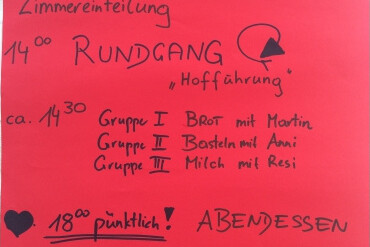 Zimmereinteilung
14⁰⁰ RUNDGANG
„Hofführung"
ca. 14³⁰ Gruppe I BROT mit Martin
Gruppe II Basteln mit Anni
Gruppe III Milch mit Resi
18⁰⁰ pünktlich! ABENDESSEN